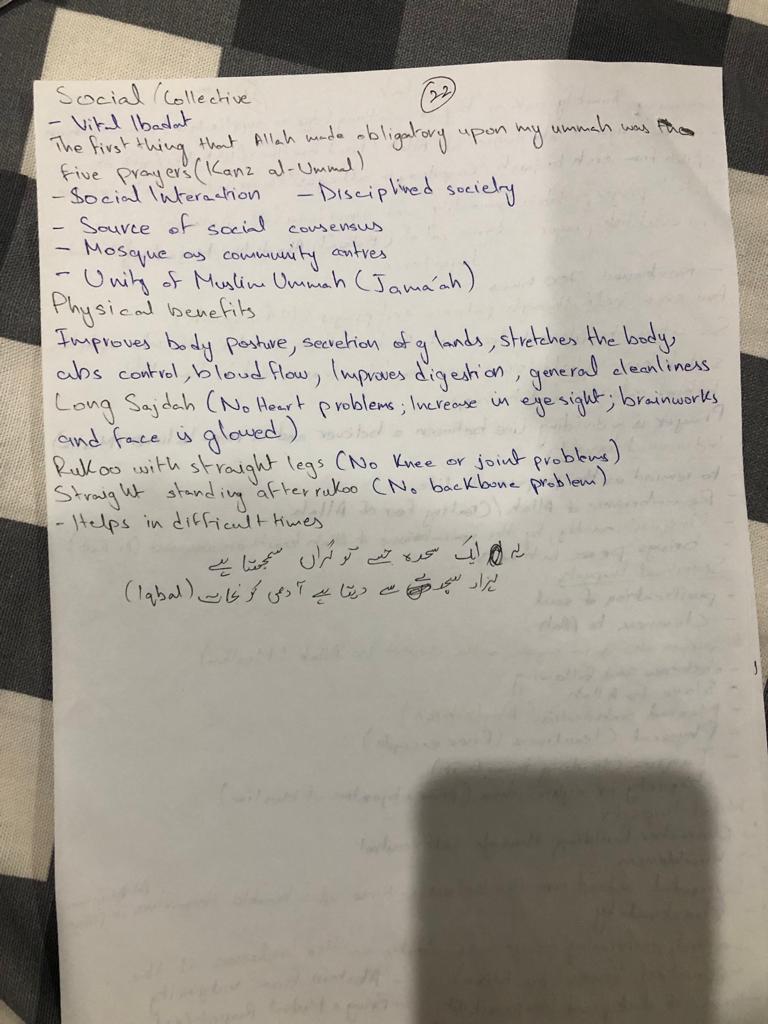 Social/Collective
22
- Vital Ibadat
The first thing that Allah made obligatory upon my ummah was the
five prayers (Kanz al-Ummal)
- Social Interaction - Disciplined society
- Source of social consensus
- Mosque as community centres
- Unity of Muslim Ummah (Jama'ah)
Physical benefits
Improves body posture, secretion of glands, stretches the body,
abs control, blood flow, Improves digestion, general cleanliness
Long Sajdah (No Heart problems; Increase in eye sight; brainworks
and face is glowed)
Rukoo with straight legs (No Knee or joint problems)
Straight standing after rukoo (No backbone problem)
- Helps in difficult times
یہ ایک سجدہ جسے تو گراں سمجھتا ہے
ہزار سجدے سے دیتا ہے آدمی کو نجات (Iqbal)